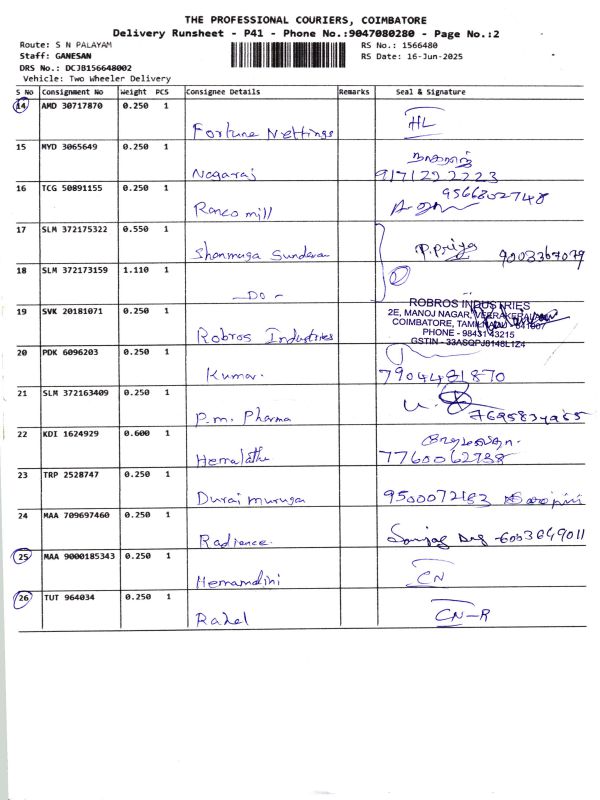 THE PROFESSIONAL COURIERS, COIMBATORE
Delivery Runsheet - P41 - Phone No.:9047080280 - Page No.:2
Route: S N PALAYAM
RS No.: 1566480
Staff: GANESAN
RS Date: 16-Jun-2025
DRS No.: DCJB156648002
Vehicle: Two Wheeler Delivery
S No Consignment No Weight PCS Consignee Details Remarks Seal & Signature
14 AMD 30717870 0.250 1
Fortune Nettings HL
15 MYD 3065649 0.250 1
நாகராஜ்
Nagaraj 9171292 2223
16 TCG 50891155 0.250 1
9566802748
Ranco mill
17 SLM 372175322 0.550 1
Shanmuga Sundaram P.Priya 9003367079
18 SLM 372173159 1.110 1
- DO -
19 SVK 20181071 0.250 1
ROBROS INDUSTRIES
2E, MANOJ NAGAR, VEERAKERALAM
COIMBATORE, TAMILNADU - 641007
PHONE - 98431 43215
GSTIN - 33ASQPJ8148L1Z4
Robros Industries
20 PDK 6096203 0.250 1
Kumar. 7904481870
21 SLM 372163409 0.250 1
P.m. Pharma
22 KDI 1624929 0.600 1
Hemalatha 7760062738
23 TRP 2528747 0.250 1
Durai murugan 9500072183
24 MAA 709697460 0.250 1
Radience. Sanjay 6003649011
25 MAA 9000185343 0.250 1
Hemanandini CN
26 TUT 964034 0.250 1
Rahel CN-R